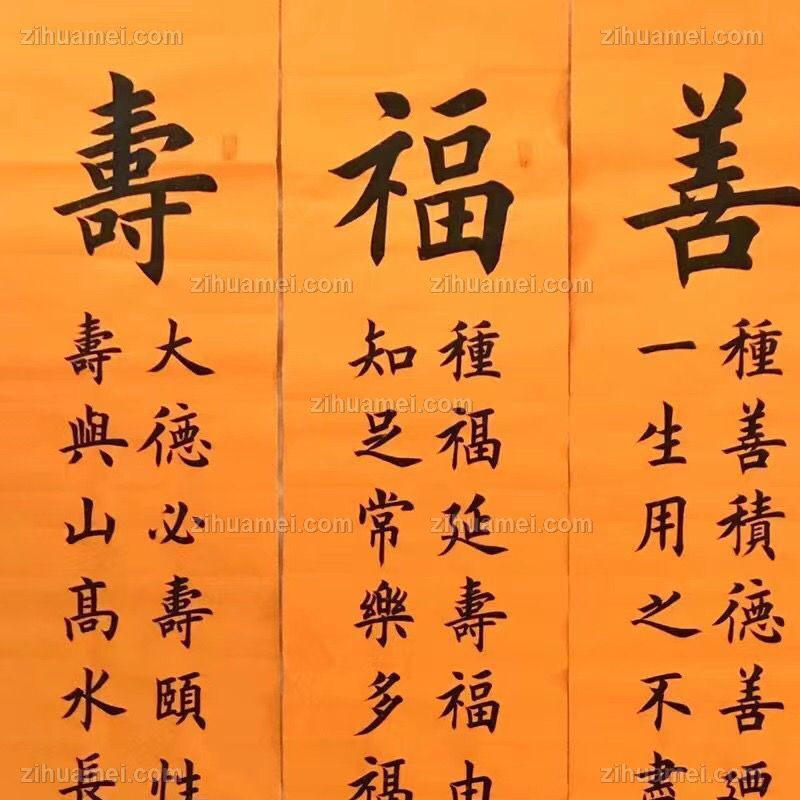 善
種善積德善迺
一生用之不盡
福
種福延壽福由
知足常樂多福
壽
大德必壽頤性
壽與山高水長
zihuamei.com
zihuamei.com
zihuamei.com
zihuamei.com
zihuamei.com
zihuamei.com
zihuamei.com
zihuamei.com
zihuamei.com
zihuamei.com